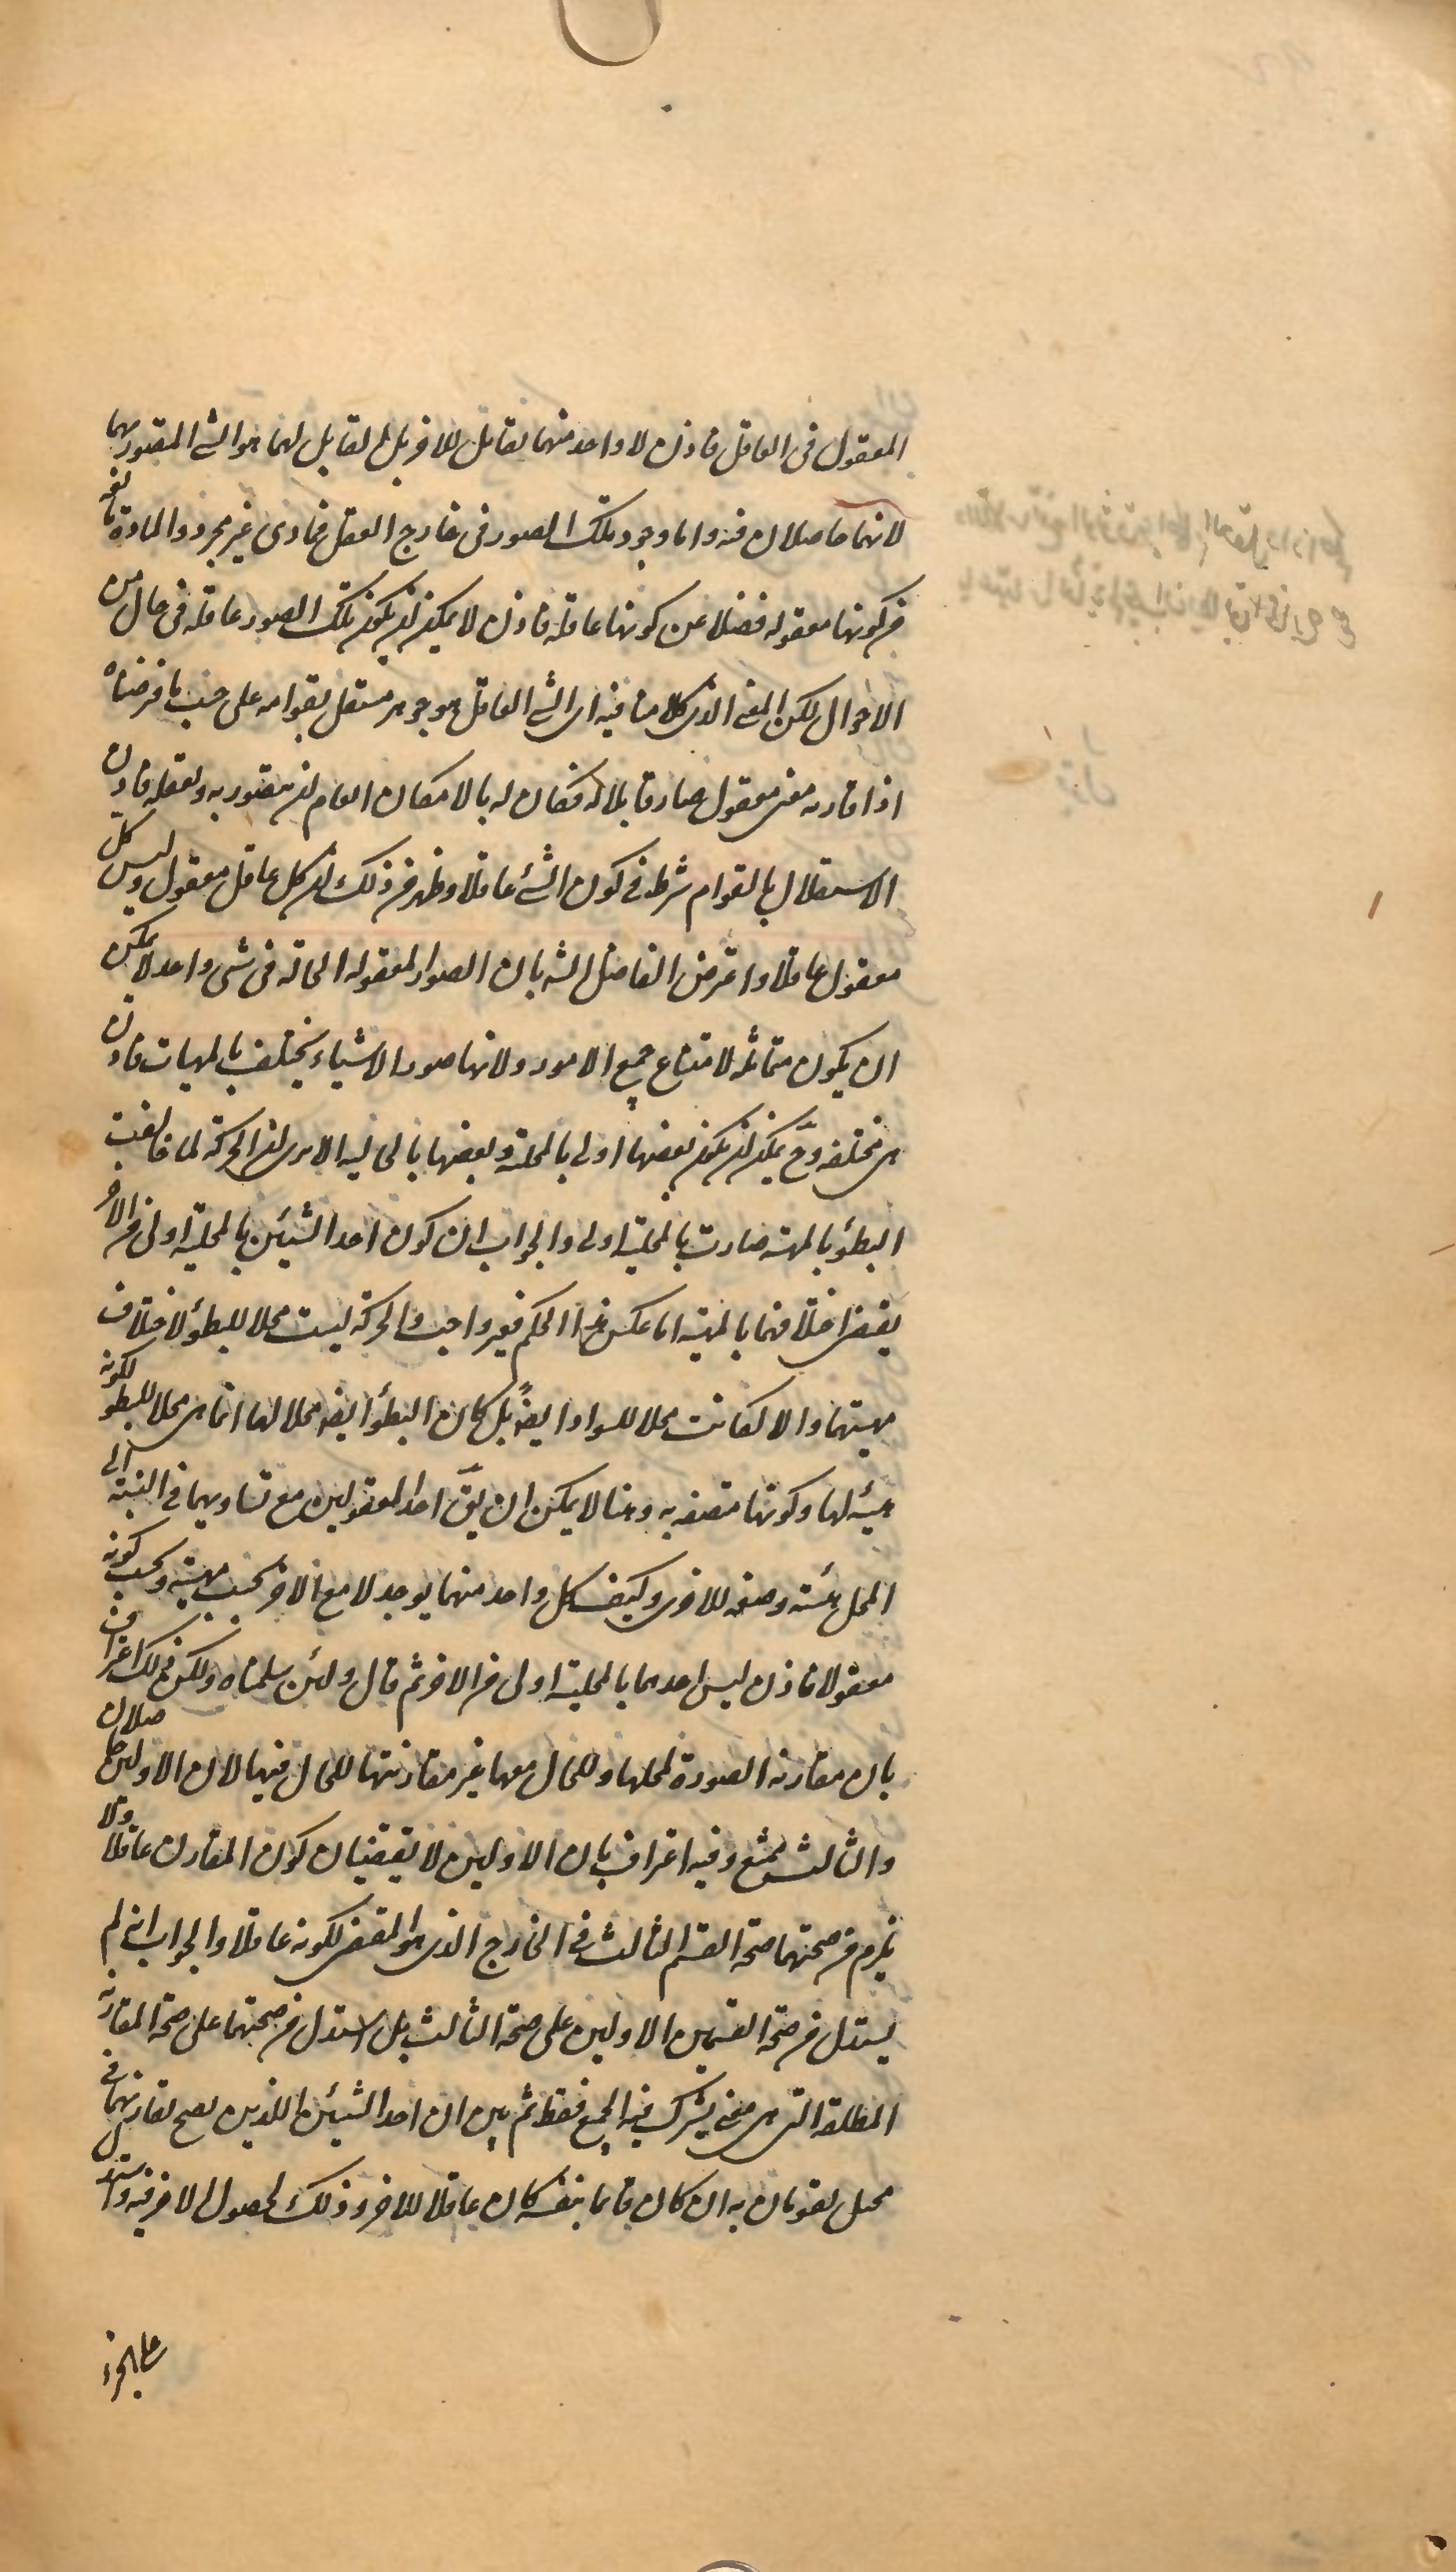 المعقول فى العاقل فاذن لا واحد منهما بقابل للاخر بل القابل لهما هو الشئ المتصور بهما
لانهما حاصلان فيه واما وجود تلك الصور فى خارج العقل فمادى غير مجرد والمادة مانعة
من كونها معقوله فضلا عن كونها عاقله فاذن لا يمكن ان يكون تلك الصور عاقله فى حال من
الاحوال لكن المعنى الذى كلامنا فيه اى الشئ العاقل هو جوهر مستقل بقوامه على حسب ما فرضناه
اذا قارنه معنى معقول صار قابلا له فكان له بالامكان العام ان يتصور به ويعقله فاذن
الاستقلال بالقوام شرط فى كون الشئ عاقلا وظهر من ذلك ان كل عاقل معقول وليس كل
معقول عاقلا واعترض الفاضل الشه بان الصور المعقوله الحالة فى شئ واحد لا يمكن
ان يكون متماثلة لامتناع جمع الامور ولانها صور الاشياء يختلف بالمهيات فاذن
هى مختلفه وح يمكن ان يكون بعضها اولى بالمحلية وبعضها بالحالية الا يرى ان الحركة لما خالفت
البطؤ بالمهية صارت بالمحلية اولى والجواب ان كون احد الشيئين بالمحلية اولى من الاخر
يقتضى اختلافهما بالمهية اما عكس هذا الحكم فغير واجب والحركة ليست محلا للبطؤ لاختلاف
مهيتهما والا لكانت محلا للسواد ايضا بل كان البطؤ ايضه محلا لها انما هى محلا للبطؤ لكونه
هيئه لها وكونها متصفه به وهنا لا يمكن ان يق احد المعقولين مع تساويهما فى النسبة الى
المحل هيئة وصفه للاخرى وكيف كل واحد منهما يوجد لا مع الاخر بحسب مهيته وبحسب كونه
معقولا فاذن ليس احدهما بالمحلية اولى من الاخر ثم قال ولئن سلمناه ولكن ذلك اعتراف
بان مقارنة الصورة لمحلها وللحال معها غير مقارنتها للحال فيها لان الاولين حاصلان
والثالث ممتنع وفيه اعتراف بان الاولين لا يقتضيان كون المقارن عاقلا ولا
يلزم من صحتهما صحة القسم الثالث فى الخارج الذى هو المقتضى لكونه عاقلا والجواب انه لم
يستدل من صحة القسمين الاولين على صحة الثالث بل استدل من صحتهما على صحة المقارنة
المطلقة التى هى معنى يشترك فيه الجميع فقط ثم بين ان احد الشيئين اللذين يصح تقارنهما فى
محل يقومان به ان كان قائما بنفسه كان عاقلا للاخر وذلك لحصول الاخر فيه واستدل